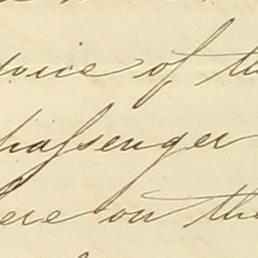 voice of th
passenger
ere on the